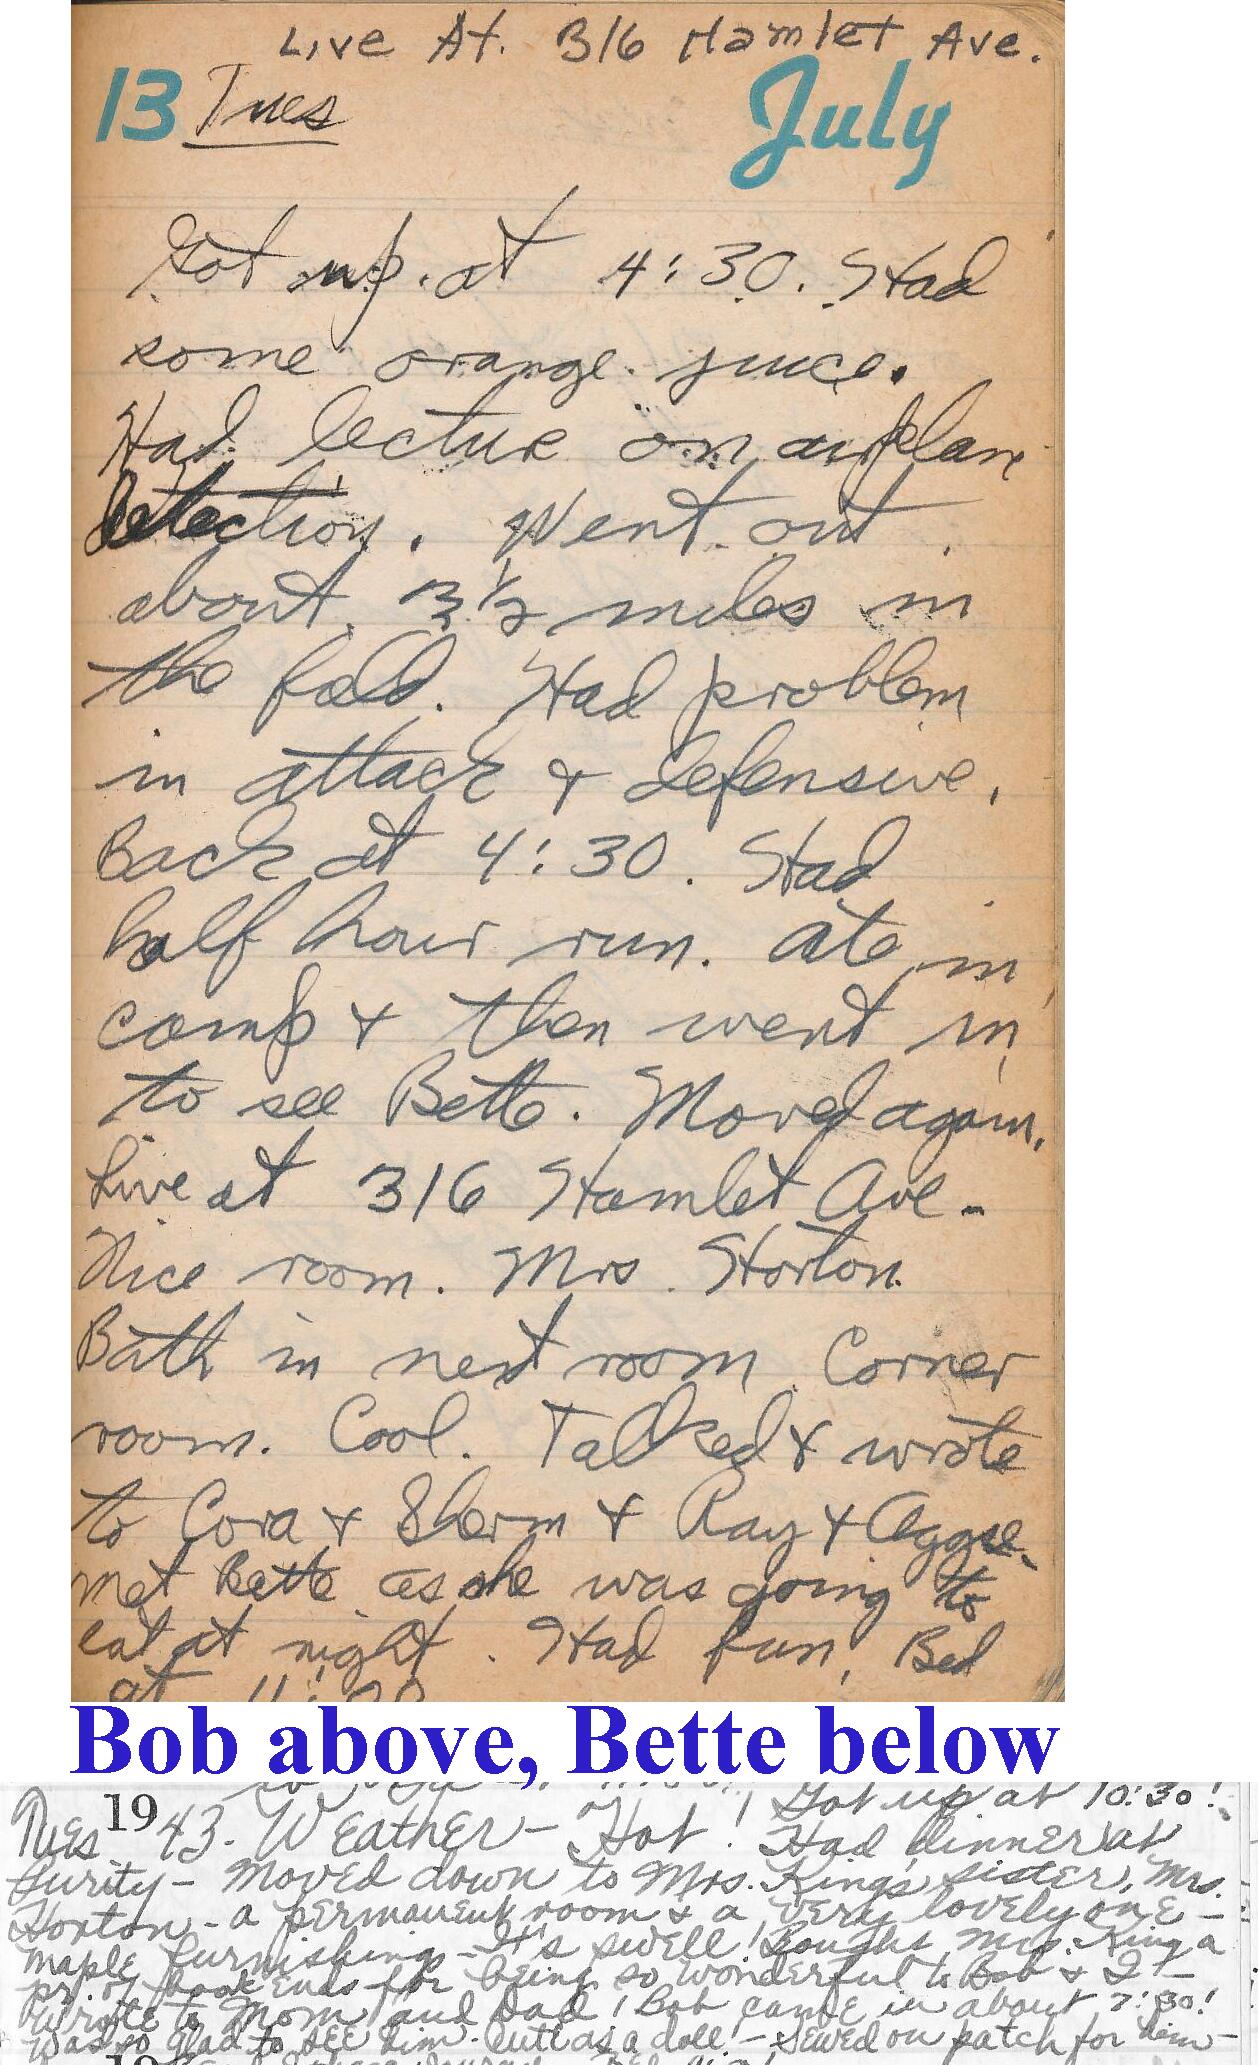 Live At. 316 Hamlet Ave.
13 Tues July
Got up at 4:30. Had
some orange juice.
Had lecture on airplane
detection. Went out
about 3 1/2 miles in
the field. Had problem
in attack & defensive.
Back at 4:30. Had
half hour run. Ate in
camp & then went in
to see Bette. Moved again.
Live at 316 Hamlet Ave.
Nice room. Mrs. Horton.
Bath in next room. Corner
room. Cool. Talked & wrote
to Cora & Sherm & Ray & Aggie.
met Bette as she was going to
eat at night. Had fun. Bed
at
Bob above, Bette below
Got up at 10:30!
Tues 1943. Weather - Hot! Had dinner at
Purity - Moved down to Mrs. King's sister, Mrs.
Horton - a permanent room & a very lovely one -
maple furnishing - It's swell! Bought Mrs. King a
pr. of book ends for being so wonderful to Bob & I -
Wrote to Mom and Dad! Bob came in about 7:30!
Was so glad to see him. Cute as a doll! - Sewed on patch for him -
19